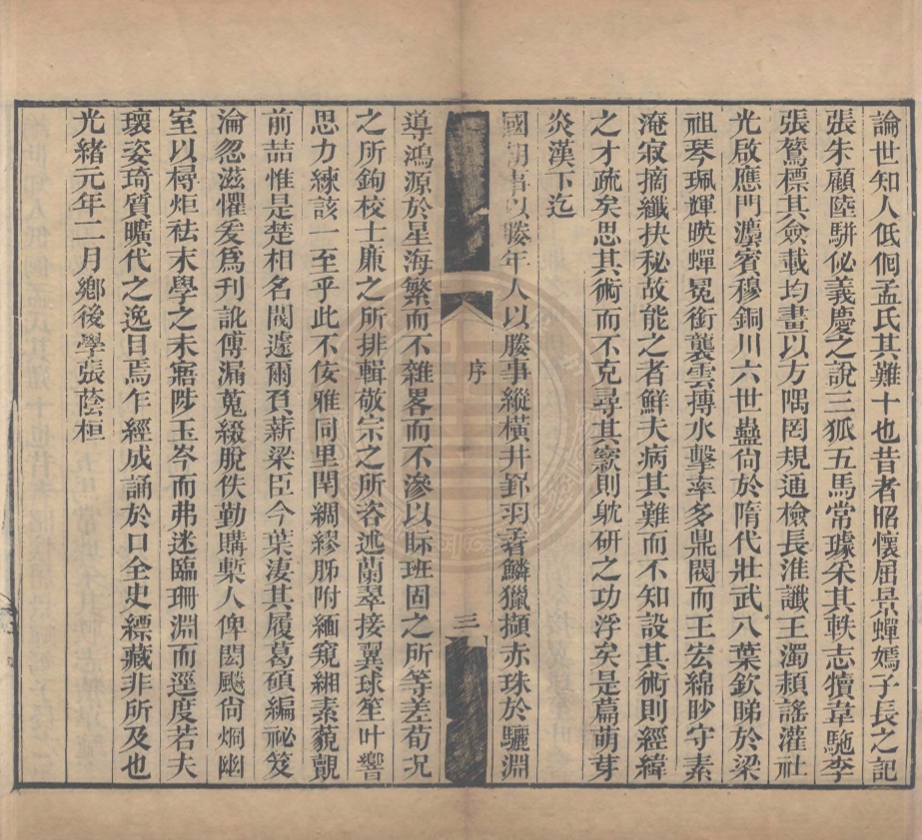 論世知人低佪孟氏其難十也昔者昭懷屈景蟬嫣子長之記
張朱顧陸駢佖義慶之說三狐五馬常璩采其軼志犢韋駞李
張鴛標其僉載均畫以方隅罔規通檢長淮讖王濁潁謠灌社
光啟應門瀍賓穆銅川六世蠱尙於隋代壯武八葉欽睇於梁
祖琴珮輝暎蟬冕銜襲雲摶水擊率多鼎閥而王宏綿眇守素
淹寂摘纖抉秘故能之者鮮夫病其難而不知設其術則經緯
之才疏矣思其術而不克尋其窾則躭研之功浮矣是篇萌芽
炎漢下迄
國朝事以縢年人以縢事縱橫井釾羽著鱗獵擷赤珠於驪淵
序
三
導鴻源於星海繁而不雜畧而不滲以眎班固之所等差荀況
之所鉤校士廉之所排輯敬宗之所咨述蘭翠接翼球笙叶響
思力練該一至乎此不侫雅同里閈綢繆肺附緬窺緗素藐覿
前喆惟是楚相名閥遽爾負薪梁臣今葉淒其履葛碩編祕笈
淪忽滋懼爰爲刊訛傳漏蒐綴脫佚勤購槧人俾閎飈尙烱幽
室以樳炬袪末學之未寤陟玉岑而弗迷臨珊淵而逕度若夫
瓌姿琦質曠代之逸目焉乍經成誦於口全史縹藏非所及也
光緒元年二月鄉後學張蔭桓